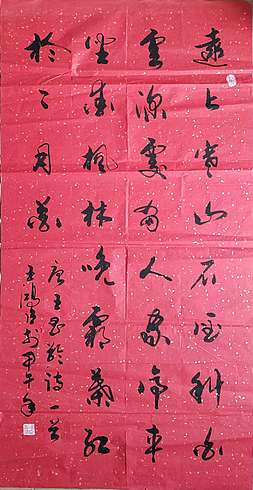 遠上寒山石徑斜白
雲深處有人家停車
坐愛楓林晚霜葉紅
於二月花
唐王昌齡詩一首
甲午年